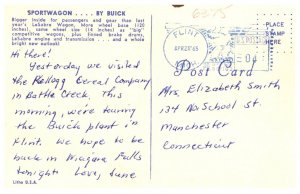 SPORTWAGON . . . . BY BUICK
Bigger inside for passengers and gear than last
year's LeSabre Wagon. More wheel base (120
inches), same wheel size (14 inches) as "big"
competitive wagons, plus finned brake drums,
LeSabre engine and transmission . . . and a whole
bright new outlook!
Hi there!
Yesterday we visited
the Kellogg Cereal Company
in Battle Creek. This
morning, we're touring
the Buick plant in
Flint. We hope to be
back in Niagara Falls
tonight! Love, June
Litho U.S.A.
FLINT
APR 28 '65
PLACE
STAMP
HERE
Post Card
Mrs. Elizabeth Smith
134 No School St
Manchester
Connecticut